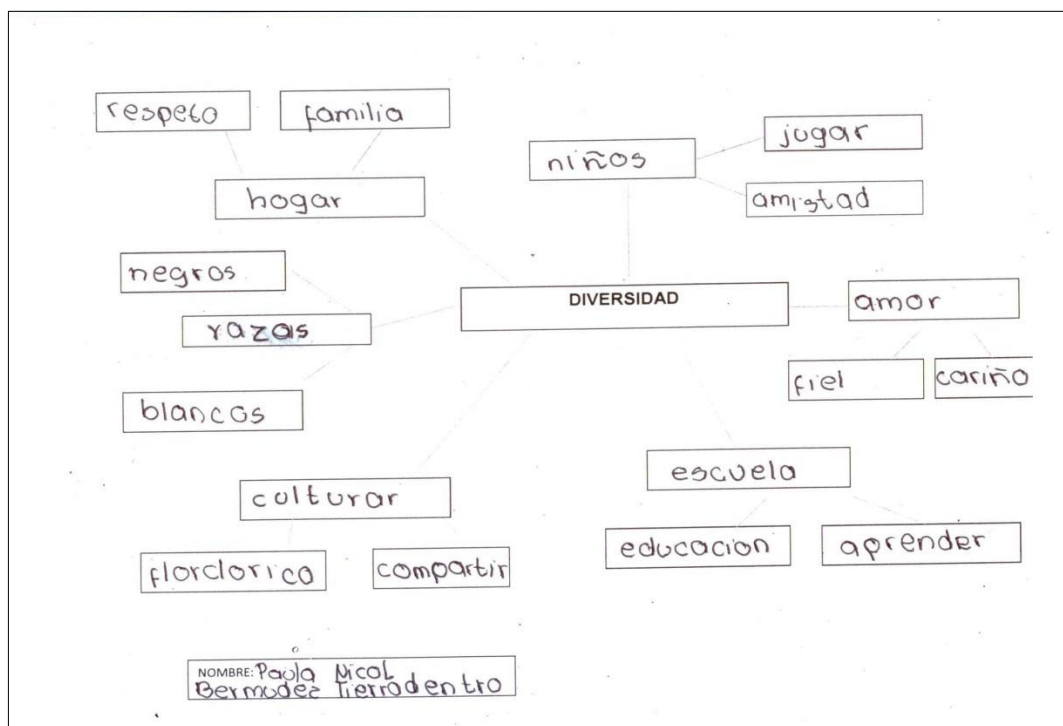 respeto
familia
hogar
niños
jugar
amistad
negros
razas
blancos
DIVERSIDAD
amor
fiel
cariño
culturar
florclorico
compartir
escuela
educacion
aprender
NOMBRE: Paula Nicol
Bermudez Tierradentro